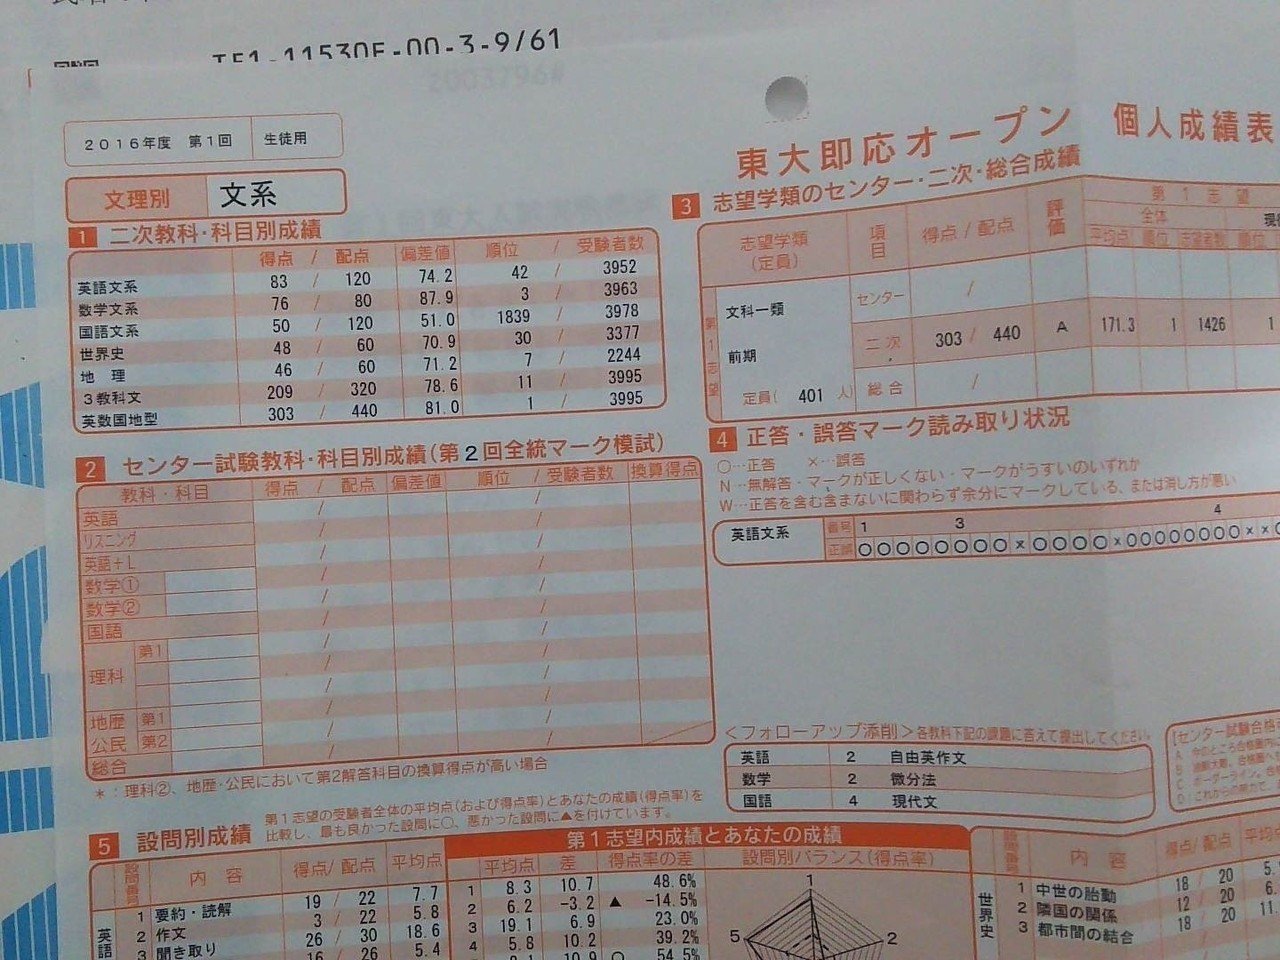 2016年度 第1回 生徒用
文理別 文系
東大即応オープン 個人成績表
1 二次教科・科目別成績
得点 / 配点 偏差値 順位 / 受験者数
英語文系 83 / 120 74.2 42 / 3952
数学文系 76 / 80 87.9 3 / 3963
国語文系 50 / 120 51.0 1839 / 3978
世界史 48 / 60 70.9 30 / 3377
地 理 46 / 60 71.2 7 / 2244
3教科文 209 / 320 78.6 11 / 3995
英数国地型 303 / 440 81.0 1 / 3995
2 センター試験教科・科目別成績(第2回全統マーク模試)
教科・科目 得点 / 配点 偏差値 順位 / 受験者数 換算得点
英語 / /
リスニング / /
英語+L / /
数学① / /
数学② / /
国語 / /
理科 第1 / /
地歴 第1
公民 第2
総合
*:理科②、地歴・公民において第2解答科目の換算得点が高い場合
3 志望学類のセンター・二次・総合成績
志望学類 (定員) 項目 得点 / 配点 評価 第1志望
全体
平均点 順位 志望者数 順位
第1志望 文科一類 前期 定員( 401 人)
センター /
二次 303 / 440 A 171.3 1 1426 1
総合 /
4 正答・誤答マーク読み取り状況
○…正答 ×…誤答
N…無解答・マークが正しくない・マークがうすいのいずれか
W…正答を含む含まないに関わらず余分にマークしている、または消し方が悪い
英語文系 番号 1 3 4
正誤 ○○○○○○○○×○○○○×○○○○○○○○××○
<フォローアップ添削>各教科下記の課題に答えて提出してください。
英語 2 自由英作文
数学 2 微分法
国語 4 現代文
5 設問別成績
第1志望の受験者全体の平均点(および得点率)とあなたの成績(得点率)を
比較し、最も良かった設問に○、悪かった設問に▲を付けています。
第1志望内成績とあなたの成績
設問番号 内 容 得点/ 配点 平均点 平均点 差 得点率の差 設問別バランス(得点率)
英語
1 要約・読解 19 / 22 7.7 1 8.3 10.7 48.6%
2 作文 3 / 22 5.8 2 6.2 -3.2 ▲ -14.5%
3 聞き取り 26 / 30 18.6 3 19.1 6.9 23.0%
16 / 26 5.4 4 5.8 10.2 39.2%
10.9 ○ 54.5%
1
2
5
世界史
設問番号 内 容 得点/ 配点
1 中世の胎動 18 / 20
2 隣国の関係 12 / 20
3 都市間の結合 18 / 20